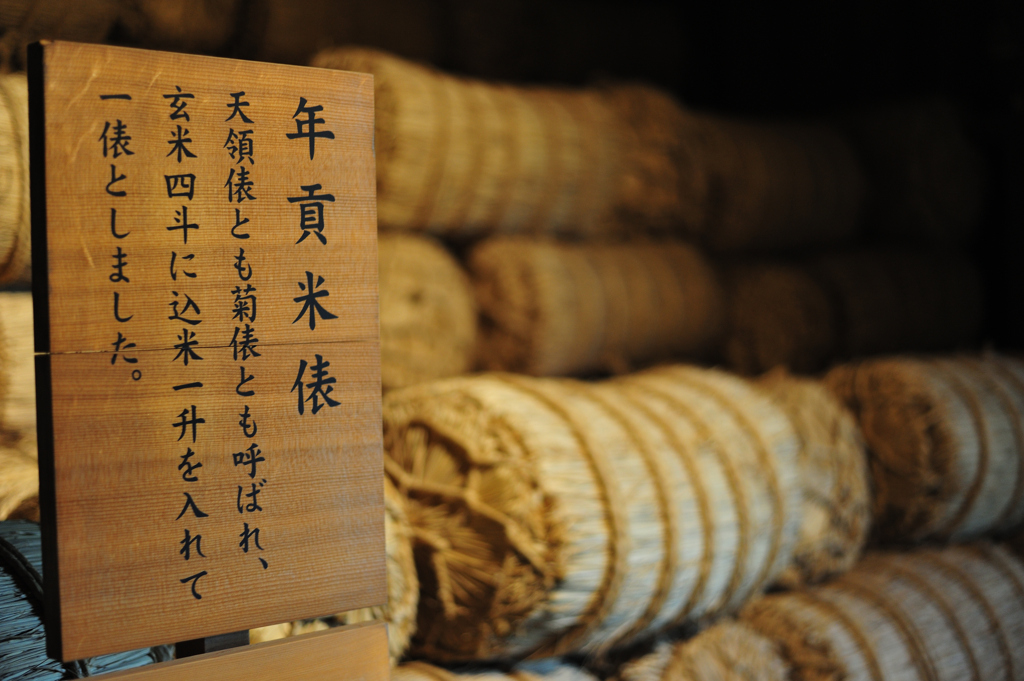 年貢米俵
天領俵とも菊俵とも呼ばれ、
玄米四斗に込米一升を入れて
一俵としました。